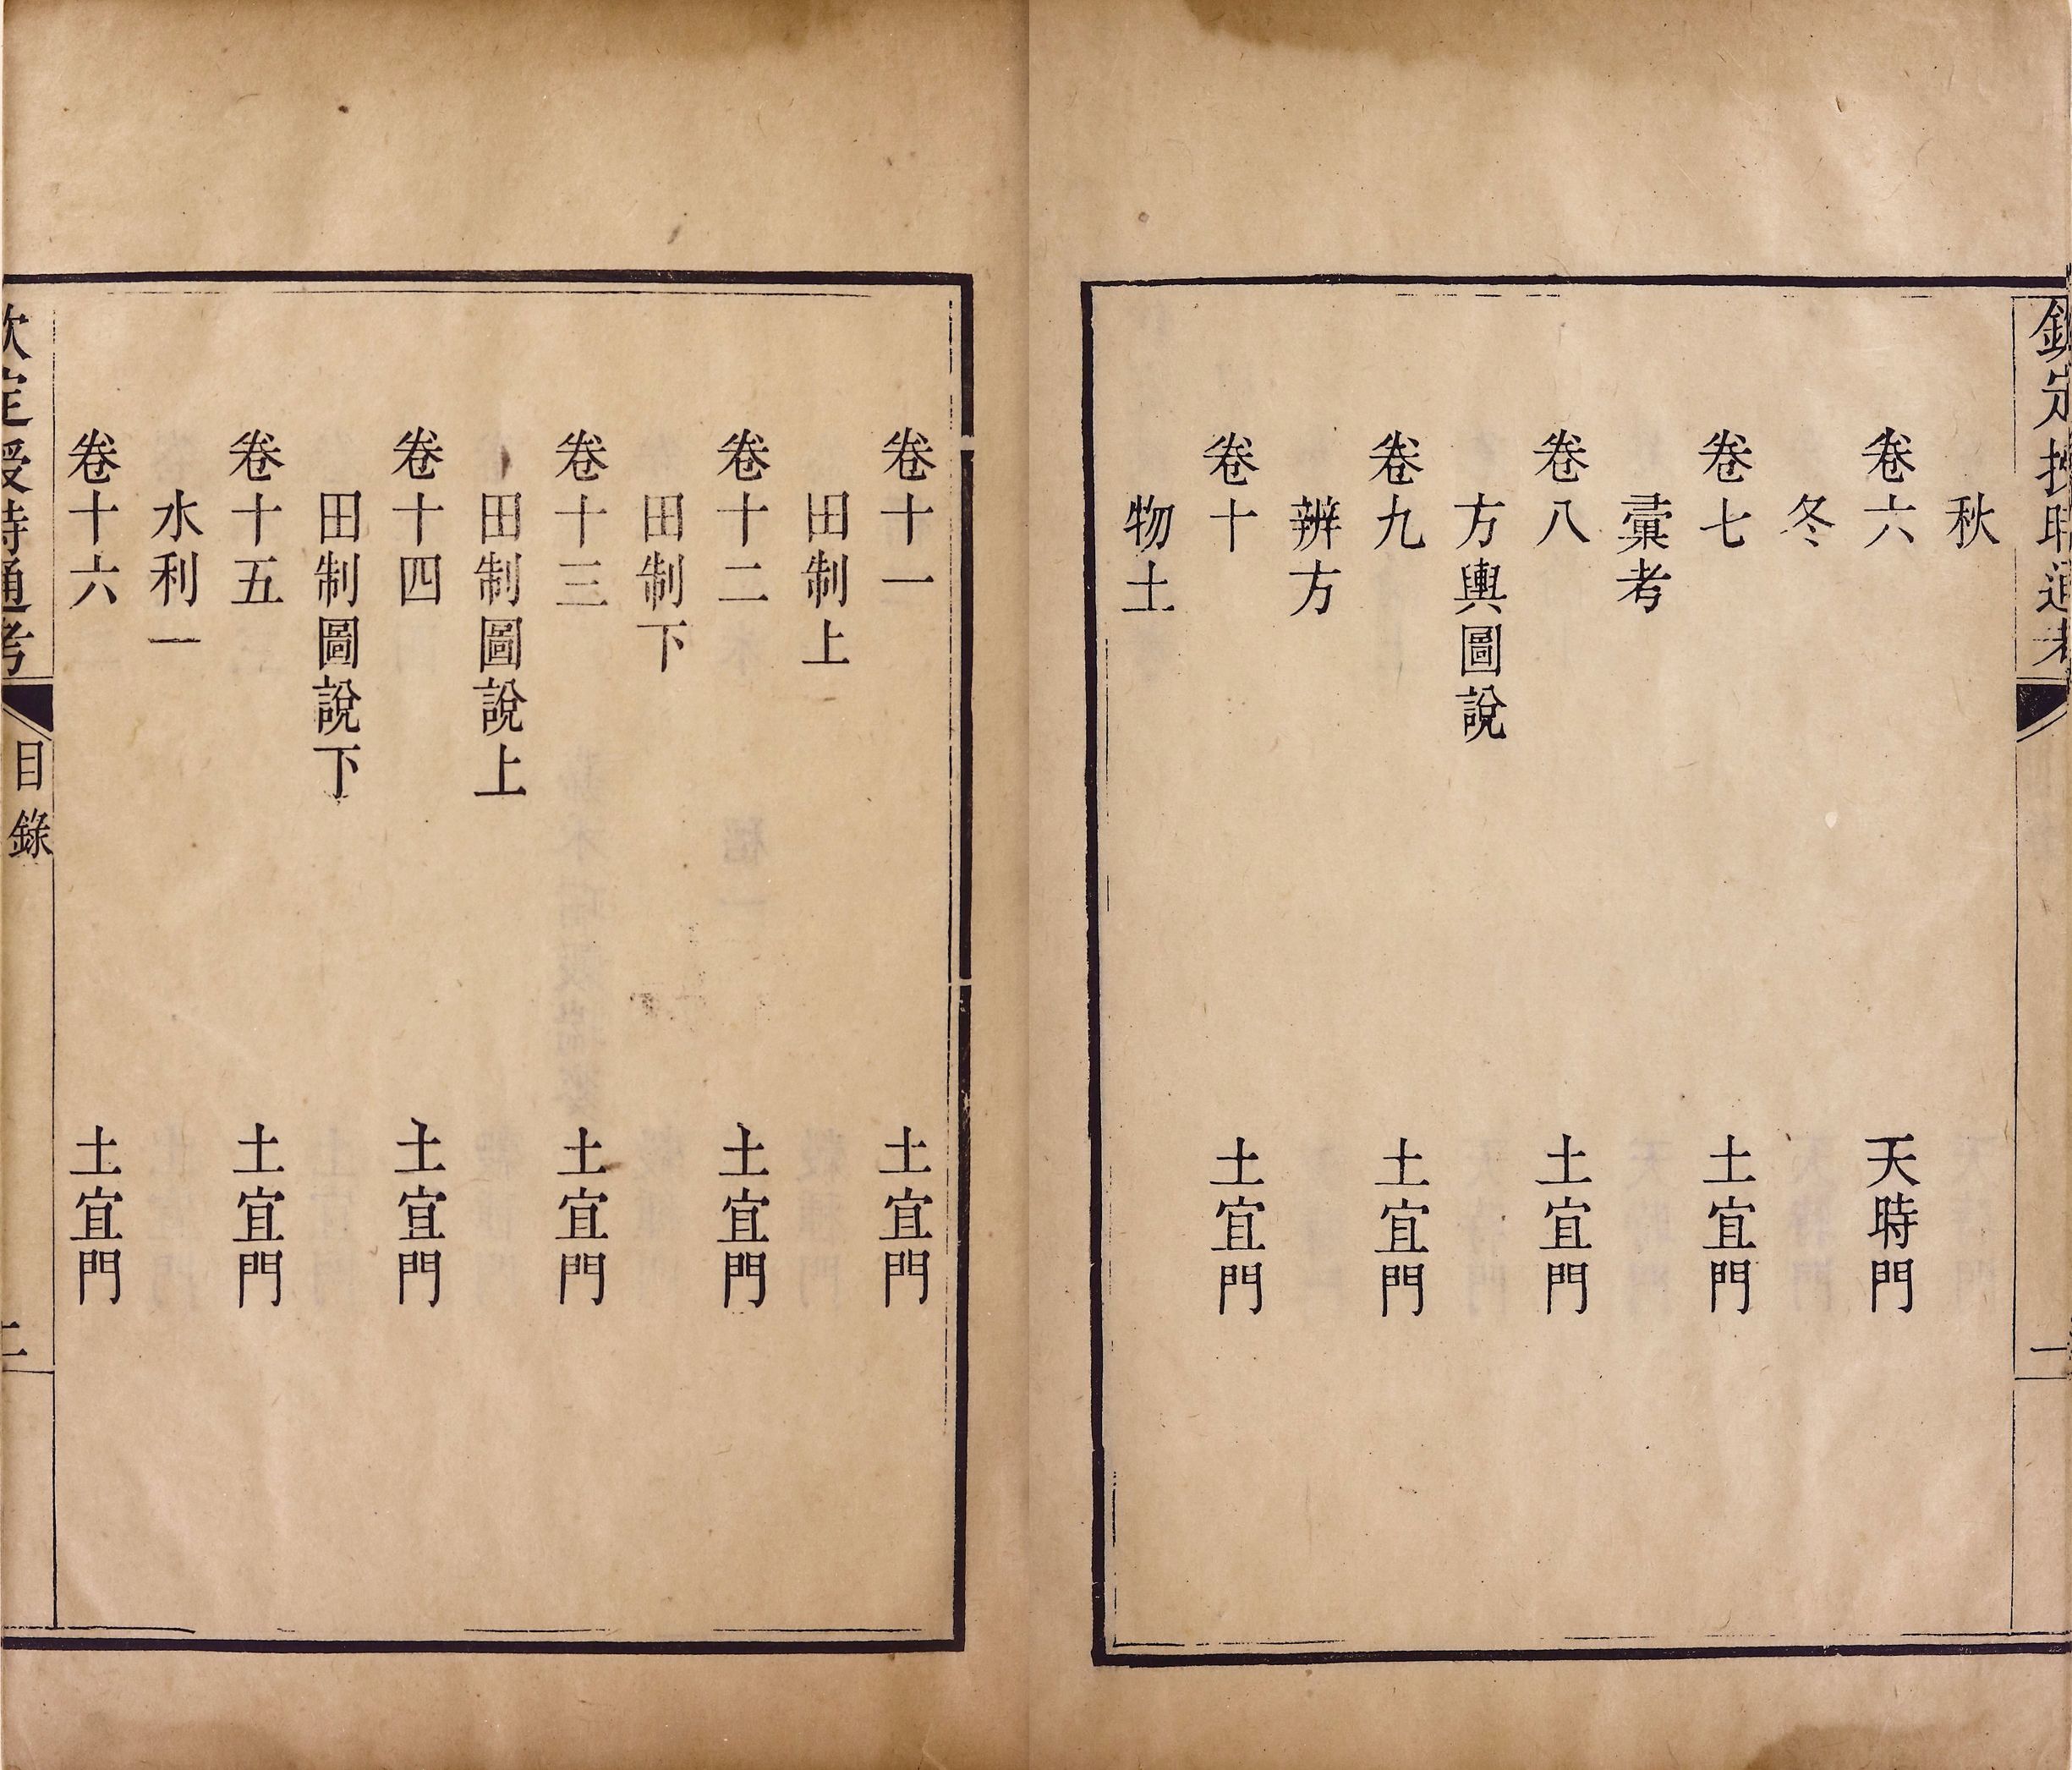 欽定授時通考
一
秋
卷六 天時門
冬
卷七 土宜門
彚考
卷八 土宜門
方輿圖說
卷九 土宜門
辨方
卷十 土宜門
物土
卷十一 土宜門
田制上
卷十二 土宜門
田制下
卷十三 土宜門
田制圖說上
卷十四 土宜門
田制圖說下
卷十五 土宜門
水利一
卷十六 土宜門
欽定授時通考
目錄
二